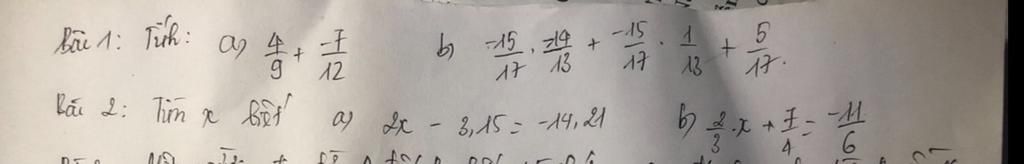 Bài 1: Tính: a) 4/9 + 7/12 b) -15/17 . -14/13 + -15/17 . 1/13 + 5/17.
Bài 2: Tìm x biết a) 2x - 3,15 = -14,21 b) 2/3 . x + 7/4 = -11/6